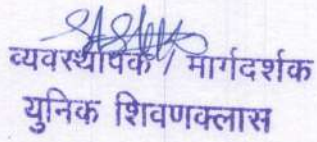 व्यवस्थापक / मार्गदर्शक
युनिक शिवणक्लास